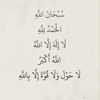 سُبْحَانَ اللَّهِ
الْحَمْدُ لِلَّهِ
لَا إِلَهَ إِلَّا اللَّهُ
اللَّهُ أَكْبَرُ
لَا حَوْلَ وَلَا قُوَّةَ إِلَّا بِاللَّهِ